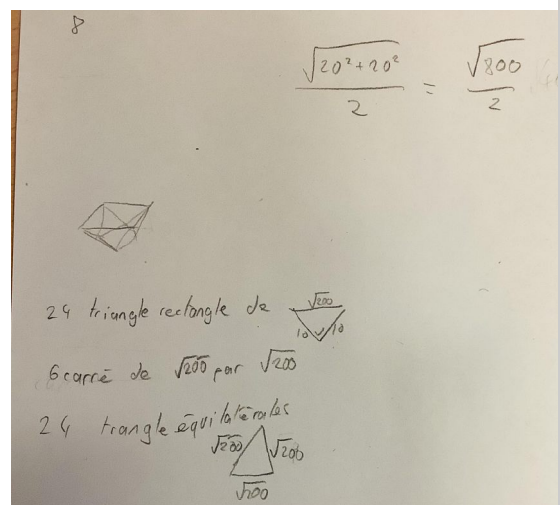 8
√(20²+20²)/2 = √800/2
24 triangle rectangle de
√200
10 10
6 carré de √200 par √200
24 trangle équilatérales
√200 √200
√200